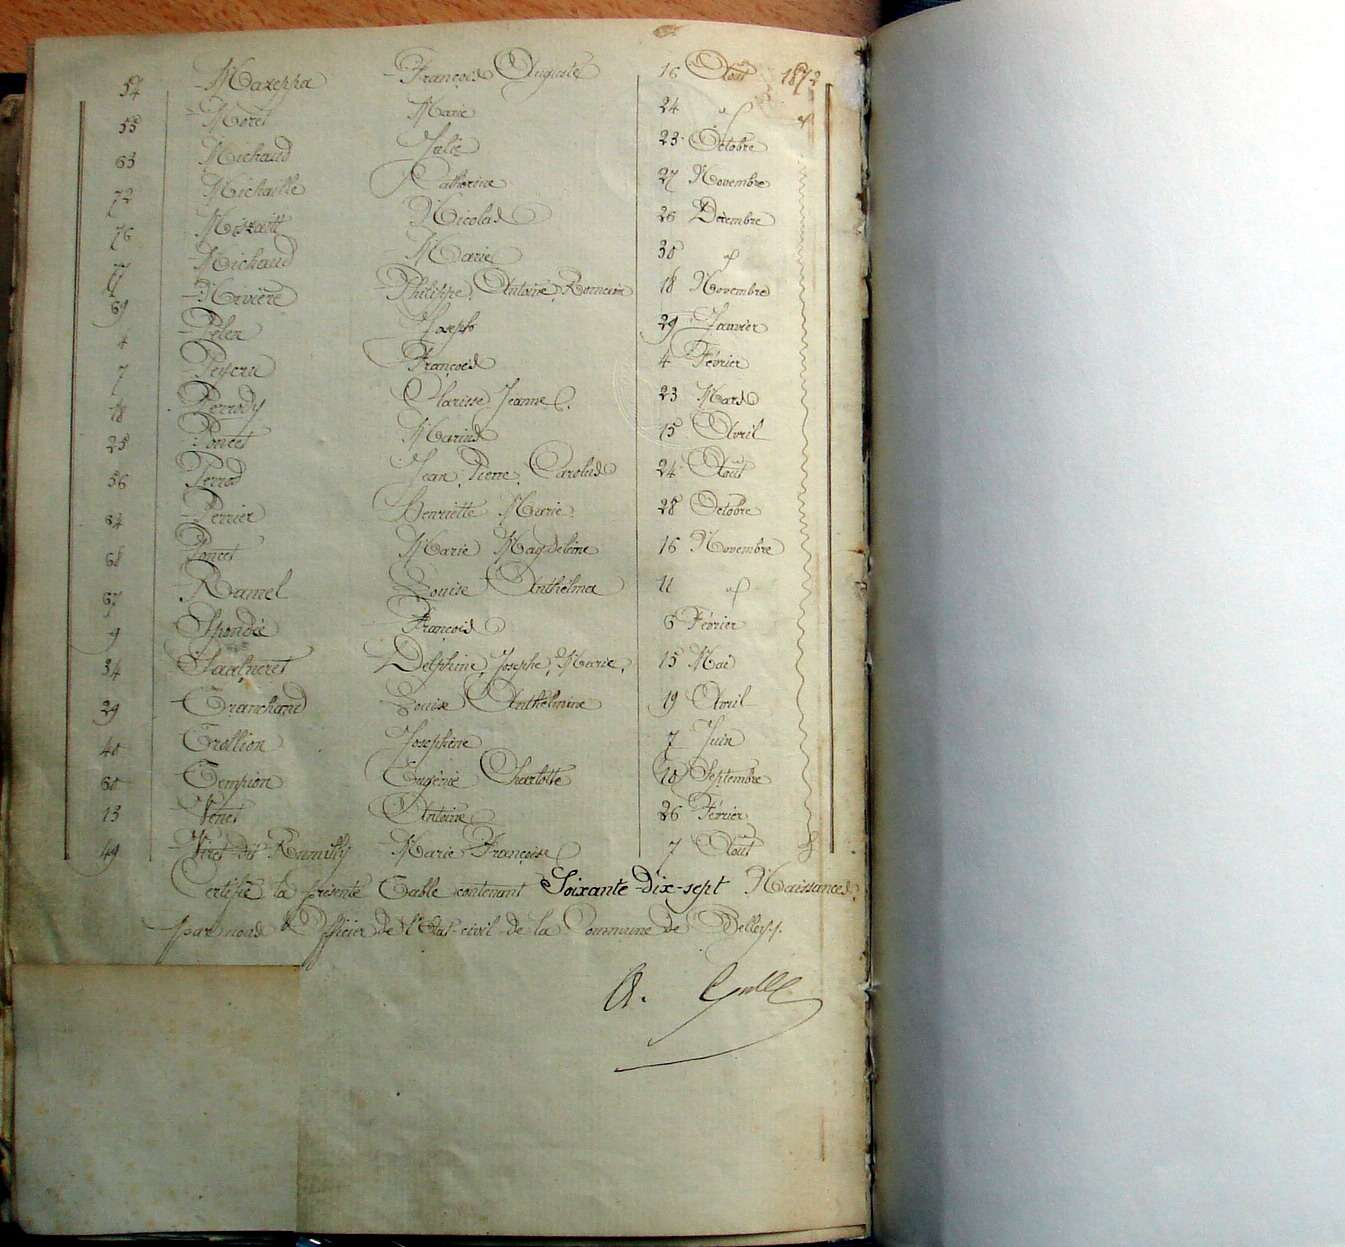 54 Mazeppa François Auguste 16 Août 1872
55 Moret Marie 24 d° d°
63 Michaud Julie 23 Octobre
72 Michaille Catherine 27 Novembre
76 Nicolas 26 Décembre
77 Michaud Marie 30 d°
69 Nivière Philippe, Antoine, 18 Novembre
4 Peler Joseph 29 Janvier
7 François 4 Février
18 Perrody Clarisse Jeanne C. 23 Mars
25 Poncet Marius 15 Avril
56 Perrod Jean, Pierre, Carolus 24 Août
64 Perrier Henriette Marie 28 Octobre
68 Poncet Marie Magdeleine 16 Novembre
67 Ramel Louise Anthelma 11 d°
9 Spondée François 6 Février
34 Delphine, Josephe, Marie, 15 Mai
29 Tranchand Louise Anthelmine 19 Avril
40 Trollion Josephine 7 Juin
60 Tempion Eugénie Charlotte 10 Septembre
13 Venet Antoine 26 Février
49 Viret dit Rumilly Marie Françoise 7 Août
Certifié la présente Table contenant Soixante-Dix-sept Naissances,
par nous Officier de l'Etat-civil de la Commune de Belley.